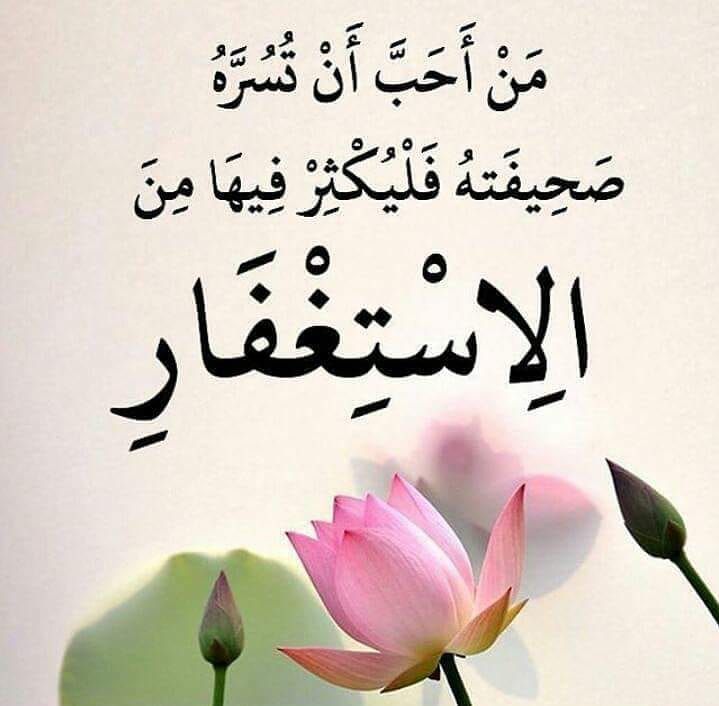 مَنْ أَحَبَّ أَنْ تُسُرَّهُ
صَحِيفَتهُ فَلْيُكْثِرْ فِيهَا مِنَ
الِاسْتِغْفَارِ